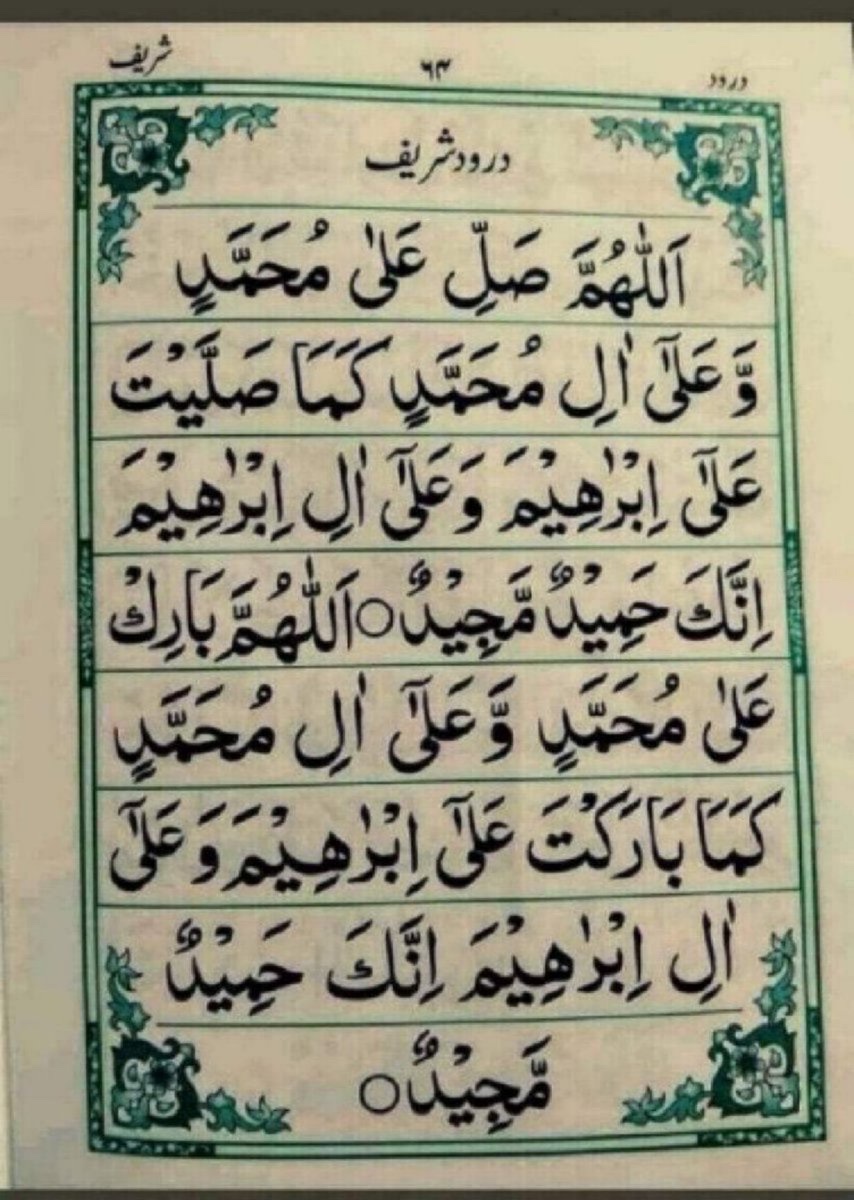 درود ۶۴ شریف
درود شریف
اَللّٰهُمَّ صَلِّ عَلٰى مُحَمَّدٍ
وَّعَلٰٓى اٰلِ مُحَمَّدٍ كَمَا صَلَّيْتَ
عَلٰٓى اِبْرٰهِيْمَ وَعَلٰٓى اٰلِ اِبْرٰهِيْمَ
اِنَّكَ حَمِيْدٌ مَّجِيْدٌ○اَللّٰهُمَّ بَارِكْ
عَلٰى مُحَمَّدٍ وَّعَلٰٓى اٰلِ مُحَمَّدٍ
كَمَا بَارَكْتَ عَلٰٓى اِبْرٰهِيْمَ وَعَلٰٓى
اٰلِ اِبْرٰهِيْمَ اِنَّكَ حَمِيْدٌ
مَّجِيْدٌ○